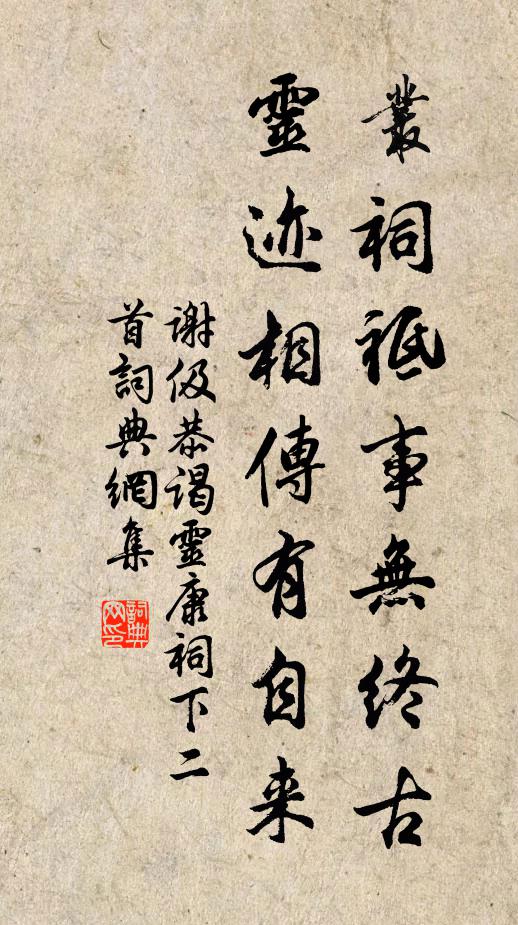 叢祠祗事無終古
靈迹相傳有自来
谢伋恭謁靈康祠下二
首詞典網集
詞典网印